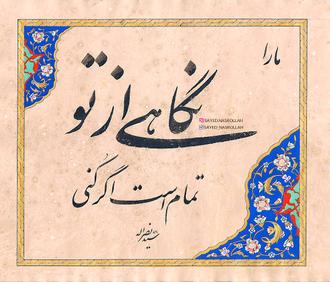 ما را
نگاهی از تو
SAYED.NASROLLAH
SAYED_NASROLLAH
تمام است اگر کنی
سید نصراله